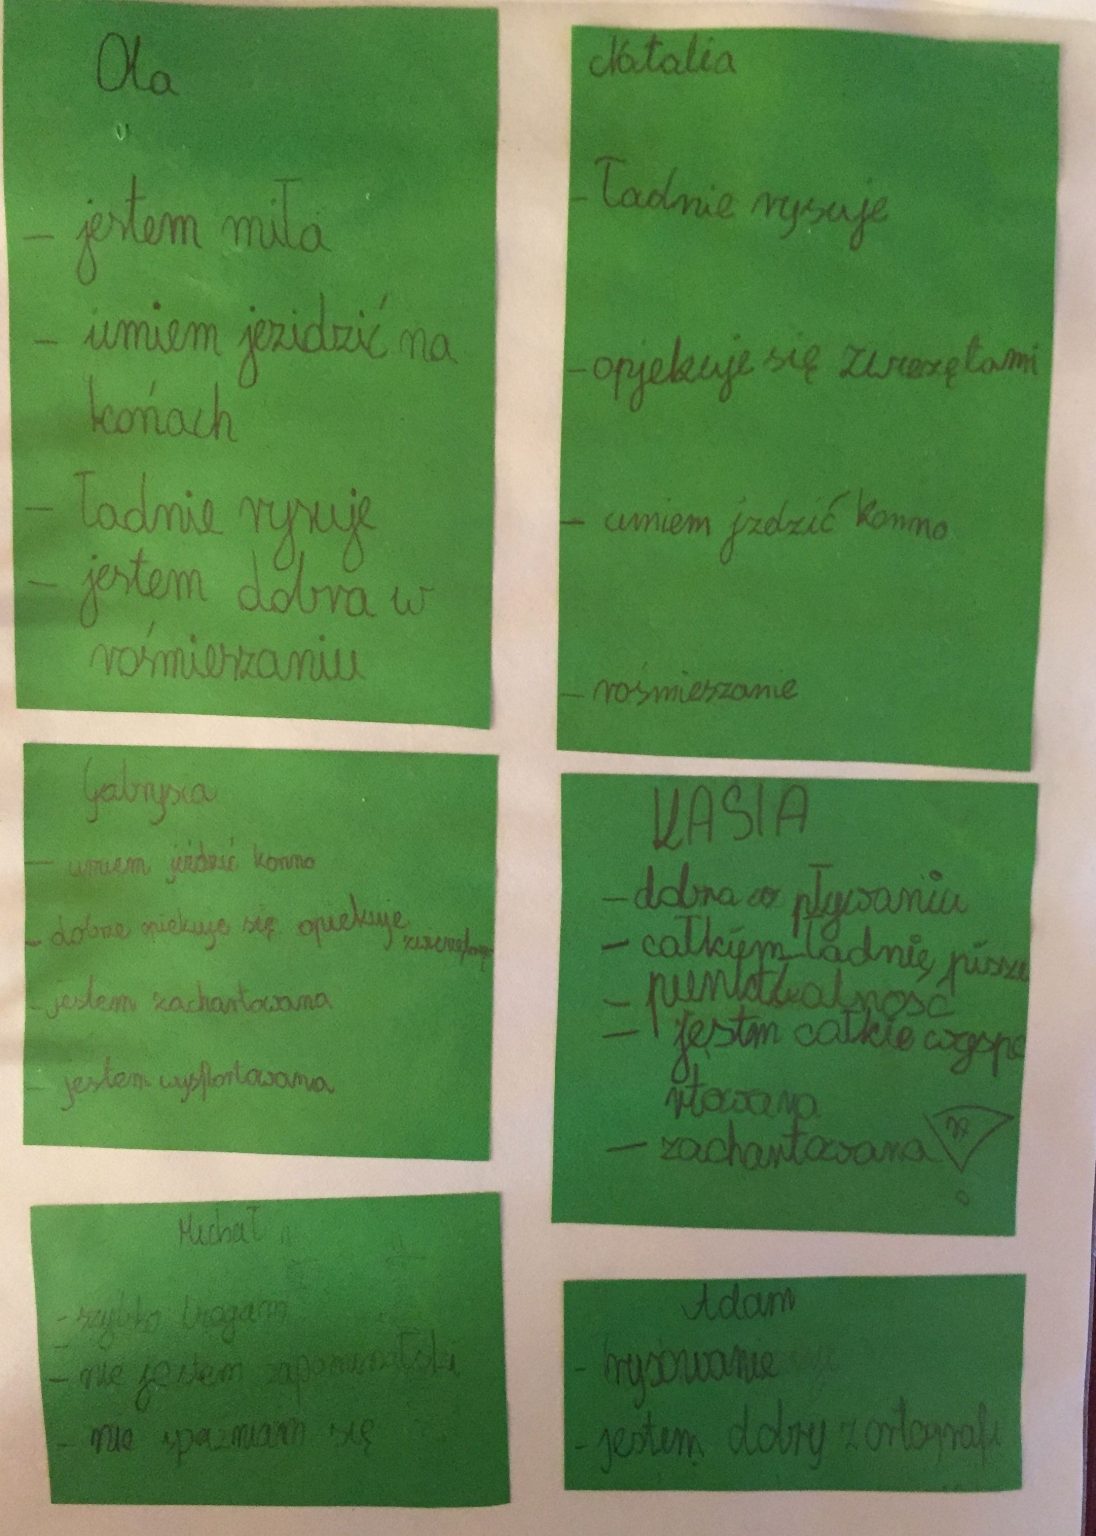 Ola
- jestem miła
- umiem jezidzić na
końach
- ładnie rysuję
- jestem dobra w
rośmierzaniu
Natalia
- ładnie rysuje
- opjekuje się
- umiem jzdzić konno
- rośmieszanie
Gabrysia
- umiem jeździć konno
- dobrze opiekuje się opiekuje
- jestem zachartowana
- jestem wysportowana
KASIA
- dobra w pływaniu
- całkiem ładnię pisze
- punktualność
- jestm całkie wyspo
rtowana
- zachartowana
Michał
- szybko biegam
- nie jestem
- nie spaźniam się
Adam
- rysowanie
- jestem dobry z ortografi